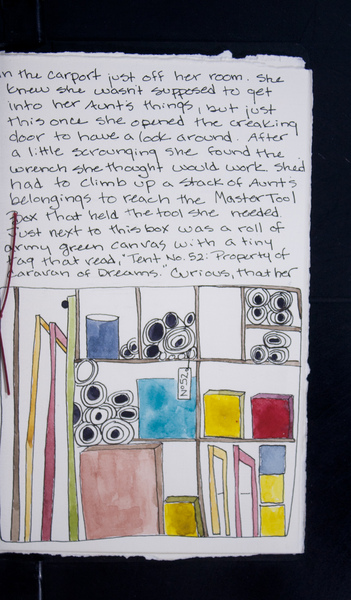 in the carport just off her room. She
knew she wasn't supposed to get
into her Aunt's things, but just
this once she opened the creaking
door to have a look around. After
a little scrounging she found the
wrench she thought would work. She'd
had to climb up a stack of Aunt's
belongings to reach the Master Tool
Box that held the tool she needed.
Just next to this box was a roll of
army green canvas with a tiny
tag that read, "Tent No. 52: Property of
Caravan of Dreams." Curious, that her
No 52